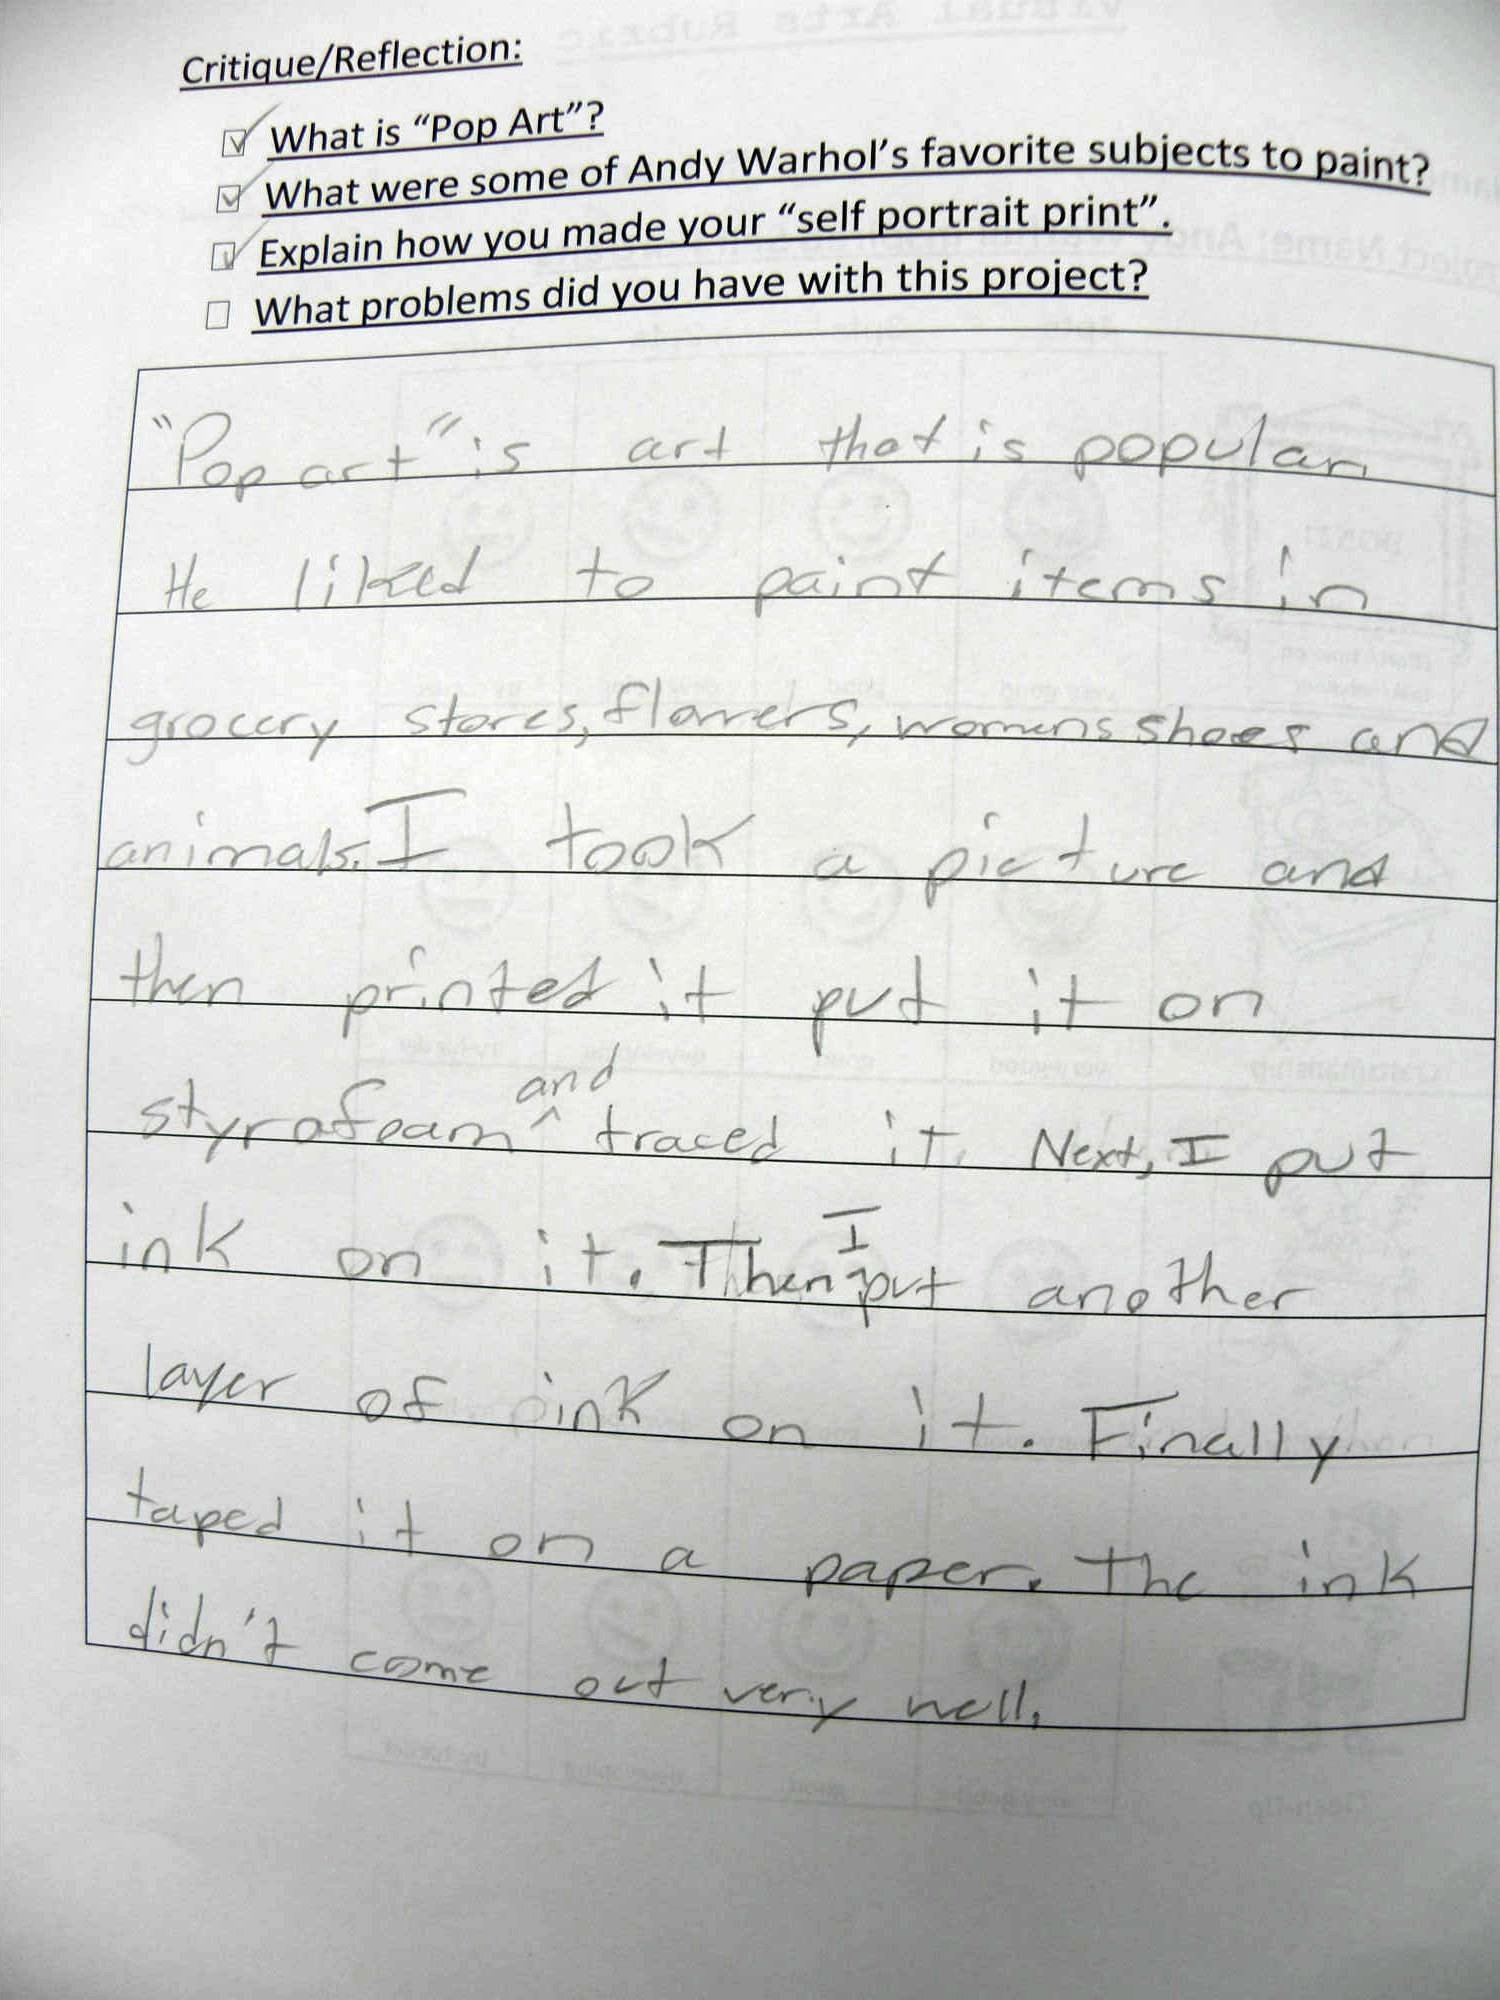 Critique/Reflection:
What is "Pop Art"?
What were some of Andy Warhol's favorite subjects to paint?
Explain how you made your "self portrait print".
What problems did you have with this project?
"Pop art" is art that is popular.
He liked to paint items in
grocery stores, flowers, womens shoes and
animals. I took a picture and
then printed it put it on
styrofoam and traced it. Next, I put
ink on it. Then I put another
layer of ink on it. Finally
taped it on a paper. The ink
didn't come out very well.